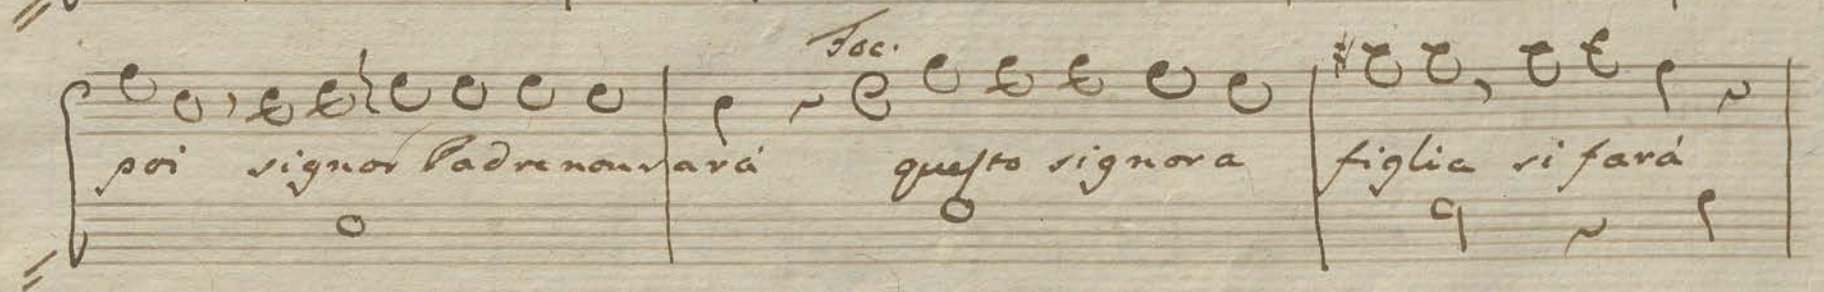 Toc.
poi signor Padre non sará questo signora figlia si fará